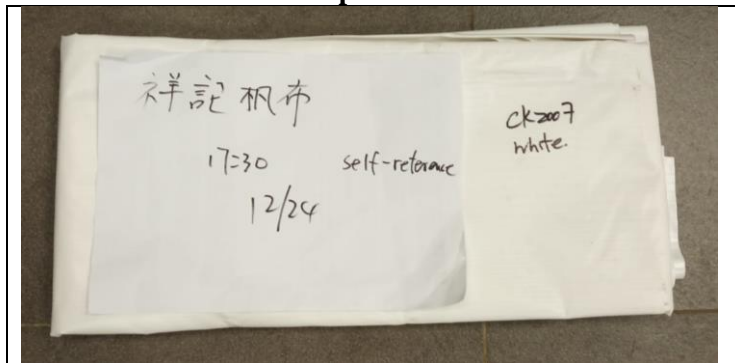 祥記帆布
17:30 self-reterance
12/24
CK2007
white.